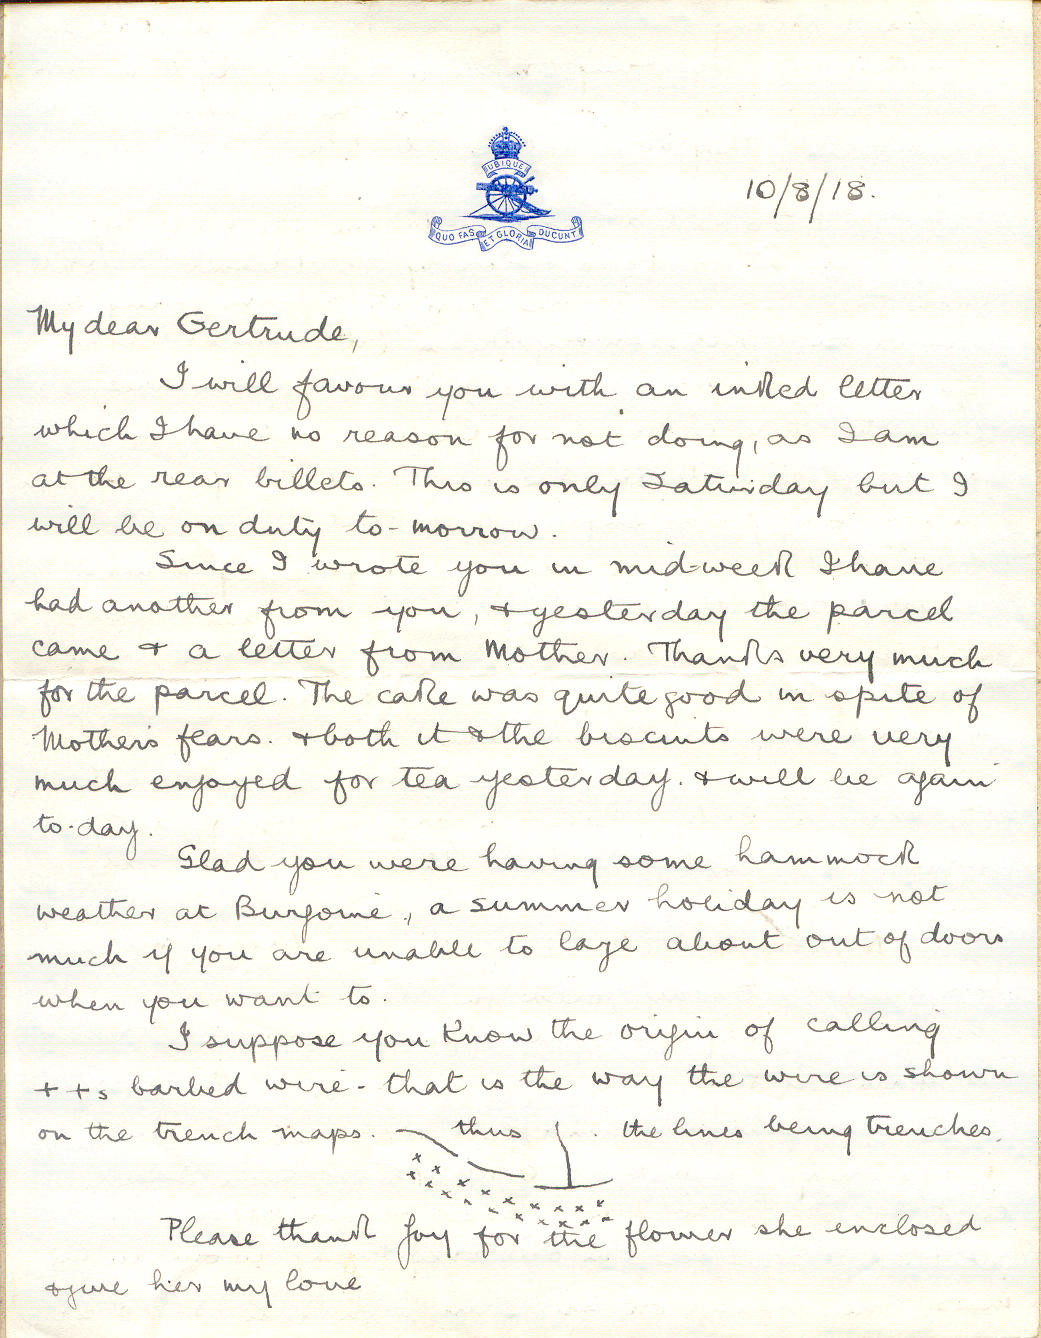 UBIQUE
QUO FAS ET GLORIA DUCUNT
10/8/18.
My dear Gertrude,
I will favour you with an inked letter
which I have no reason for not doing, as I am
at the rear billets. This is only Saturday but I
will be on duty to-morrow.
Since I wrote you in mid-week I have
had another from you, & yesterday the parcel
came & a letter from Mother. Thanks very much
for the parcel. The cake was quite good in spite of
Mother's fears. & both it & the biscuits were very
much enjoyed for tea yesterday. & will be again
to-day.
Glad you were having some hammock
weather at Burgoine, a summer holiday is not
much if you are unable to laze about out of doors
when you want to.
I suppose you know the origin of calling
++s barbed wire - that is the way the wire is shown
on the trench maps. thus . the lines being trenches.
Please thank Joy for the flower she enclosed
& give her my love